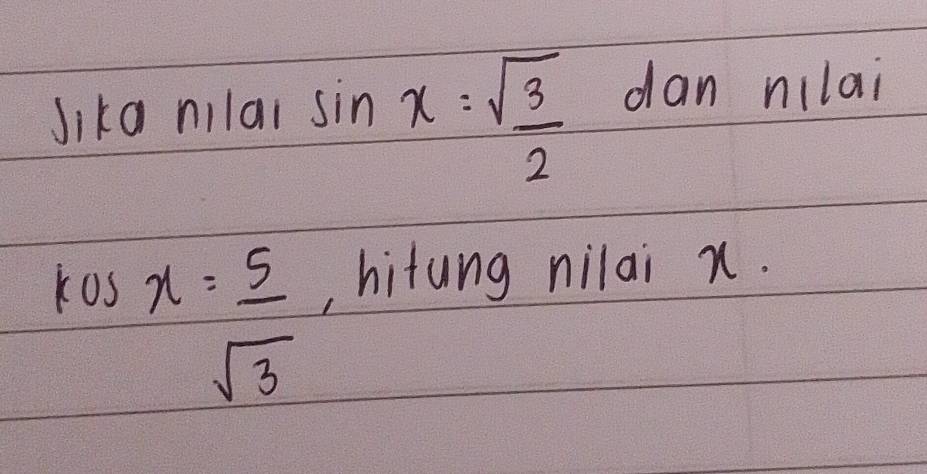 Jika nilai sin x = √3/2 dan nilai
kos x = 5/√3, hitung nilai x.